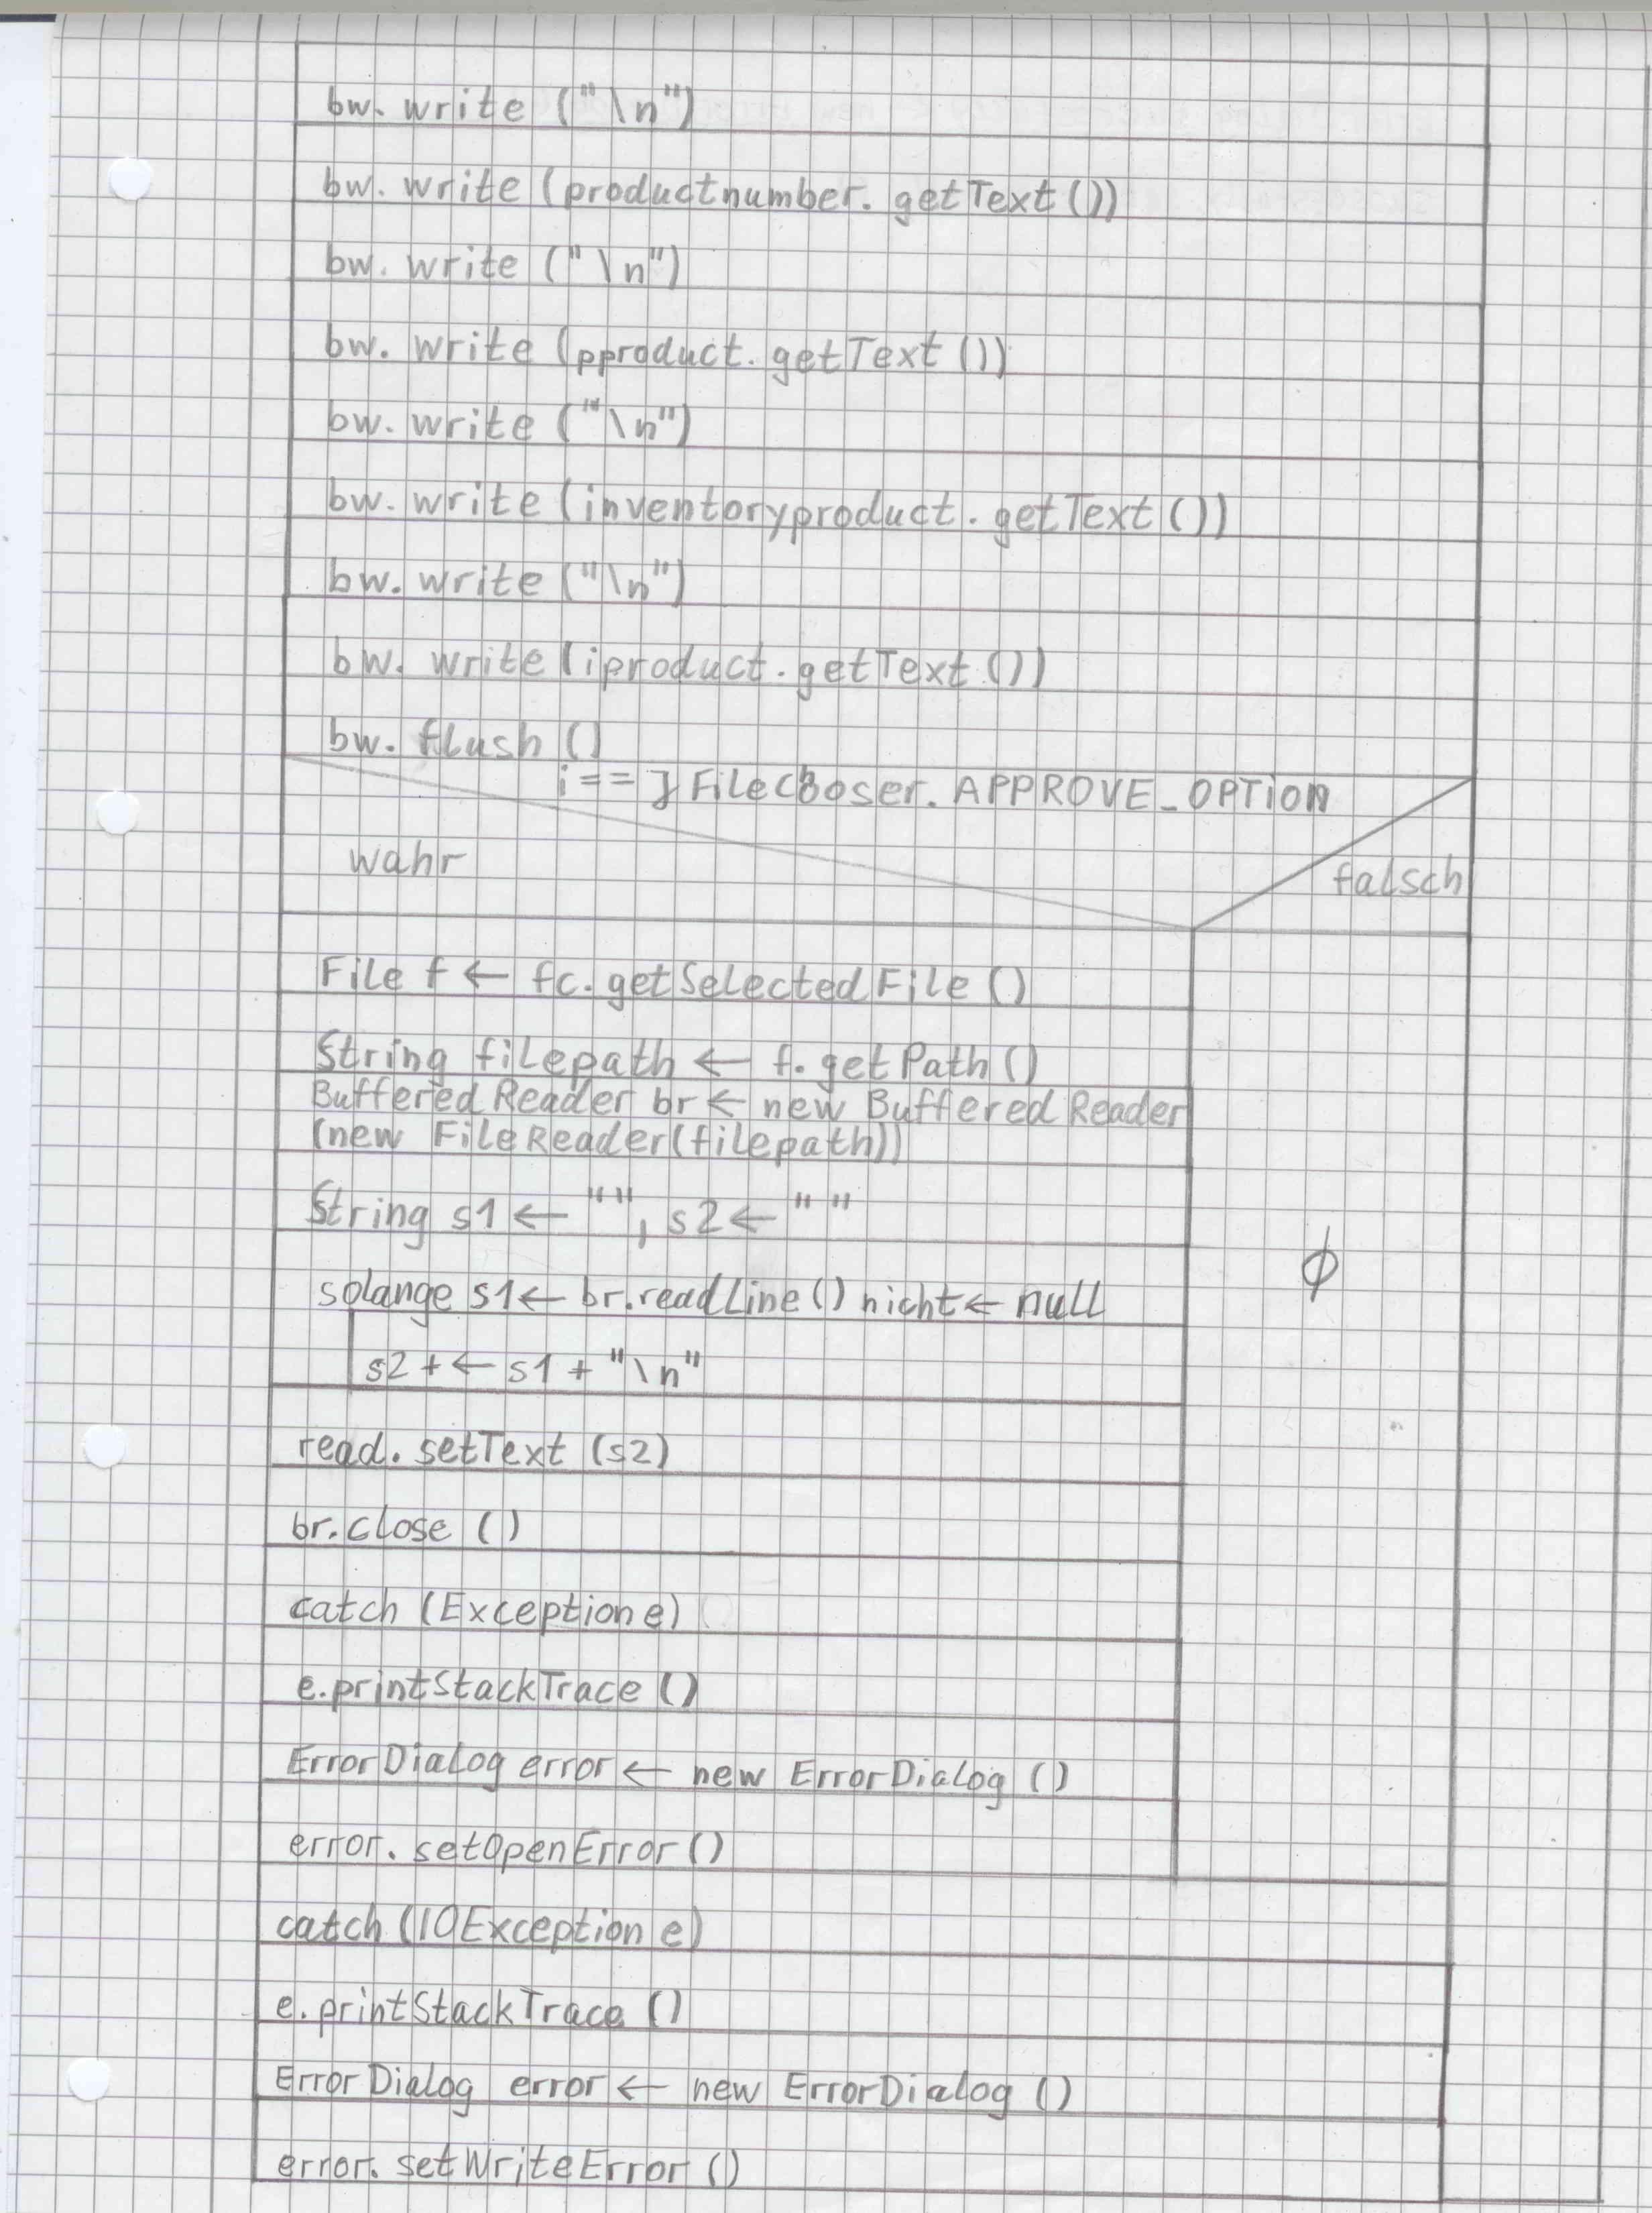 bw. write ("\n")
bw. write (productnumber. getText ())
bw. write ("\n")
bw. write (pproduct. getText ())
bw. write ("\n")
bw. write (inventoryproduct. getText ())
bw. write ("\n")
bw. write (iproduct. getText ())
bw. flush ()
i == JFileChooser. APPROVE_OPTION
wahr
falsch
File f ← fc. getSelectedFile ()
String filepath ← f. getPath ()
BufferedReader br ← new BufferedReader
(new FileReader (filepath))
String s1 ← "", s2 ← ""
solange s1 ← br.readLine () nicht ← null
ϕ
s2 + ← s1 + "\n"
read. setText (s2)
br. close ()
catch (Exception e)
e.printStackTrace ()
ErrorDialog error ← new ErrorDialog ()
error. setOpenError ()
catch (IOException e)
e.printStackTrace ()
ErrorDialog error ← new ErrorDialog ()
error. setWriteError ()